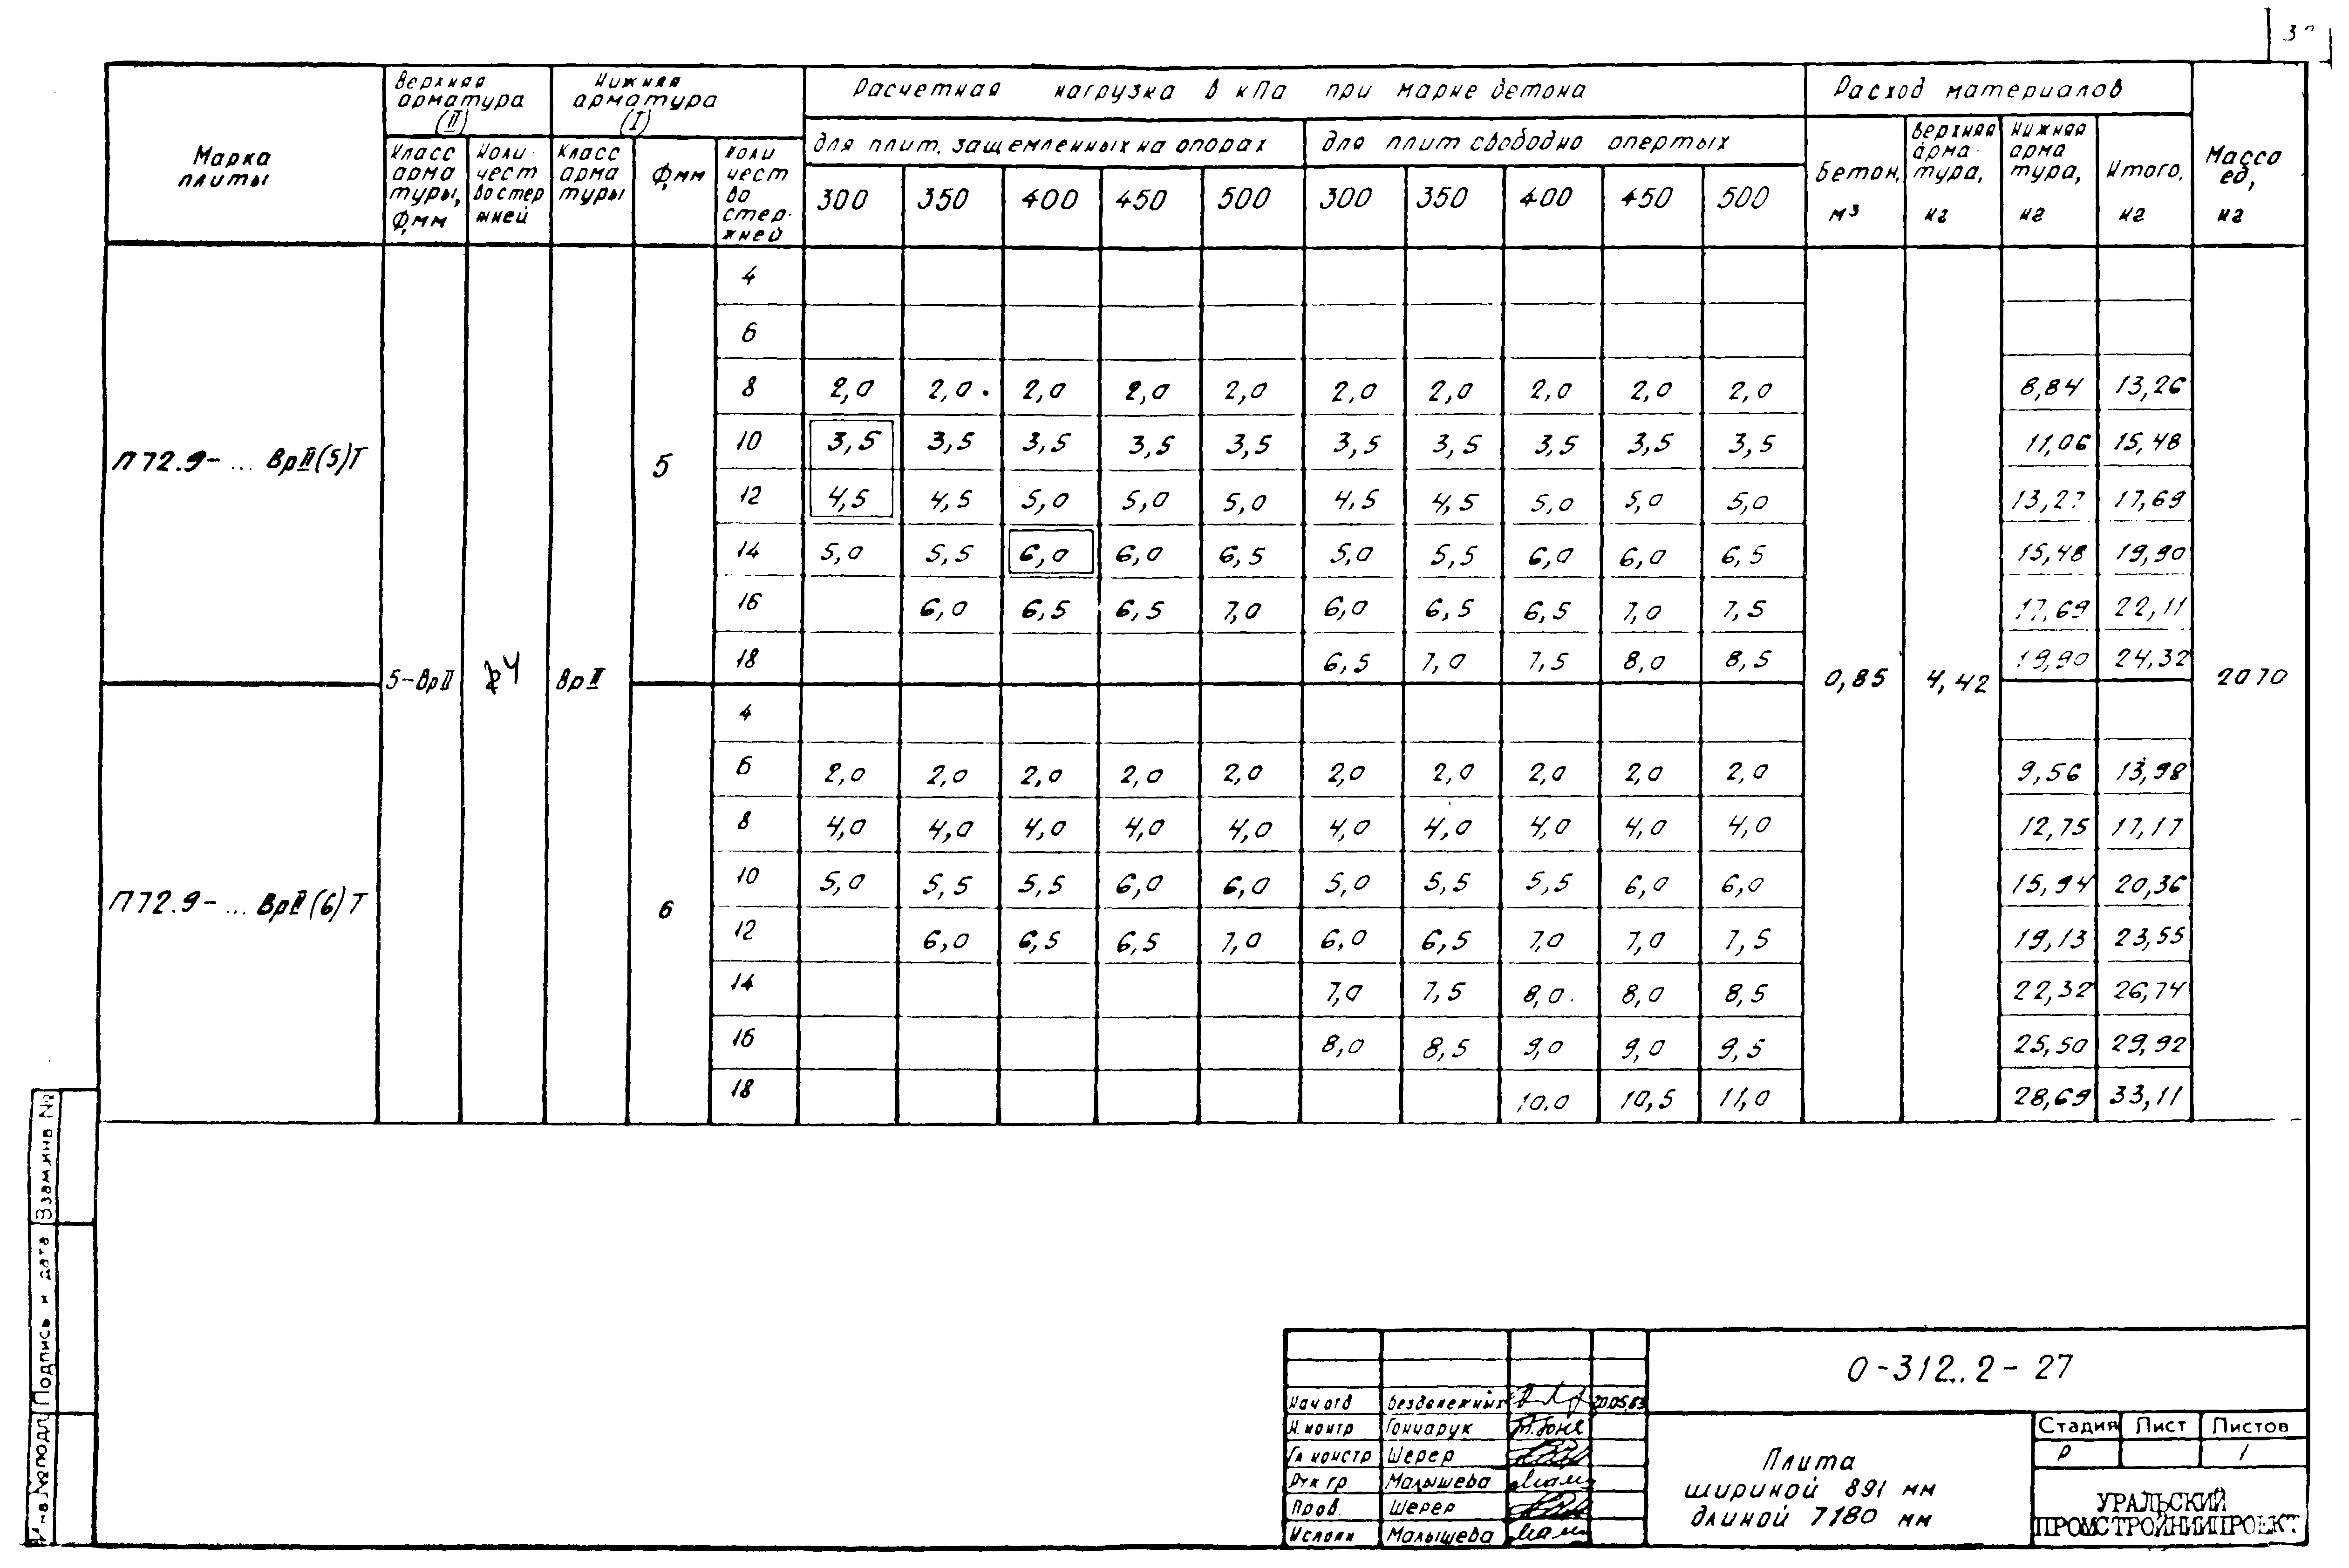 Марка плиты
Верхняя арматура (II)
Нижняя арматура (I)
Расчетная нагрузка в кПа при марке бетона
Расход материалов
Масса ед, кг
Класс арматуры, Ф,мм
Количество стержней
Класс арматуры
Ф,мм
Количество стержней
для плит, защемленных на опорах
для плит свободно опертых
300 350 400 450 500 300 350 400 450 500
Бетон, м³
Верхняя арматура, кг
Нижняя арматура, кг
Итого, кг
П72.9- ... ВрII(5)Т
5-ВрII
4
ВрII
0,85
4,42
2070
5
4
6
8 2,0 2,0 2,0 2,0 2,0 2,0 2,0 2,0 2,0 2,0 8,84 13,26
10 3,5 3,5 3,5 3,5 3,5 3,5 3,5 3,5 3,5 3,5 11,06 15,48
12 4,5 4,5 5,0 5,0 5,0 4,5 4,5 5,0 5,0 5,0 13,27 17,69
14 5,0 5,5 6,0 6,0 6,5 5,0 5,5 6,0 6,0 6,5 15,48 19,90
16 6,0 6,5 6,5 7,0 6,0 6,5 6,5 7,0 7,5 17,69 22,11
18 6,5 7,0 7,5 8,0 8,5 19,90 24,32
П72.9- ... ВрII(6)Т
6
4
6 2,0 2,0 2,0 2,0 2,0 2,0 2,0 2,0 2,0 2,0 9,56 13,98
8 4,0 4,0 4,0 4,0 4,0 4,0 4,0 4,0 4,0 4,0 12,75 17,17
10 5,0 5,5 5,5 6,0 6,0 5,0 5,5 5,5 6,0 6,0 15,94 20,36
12 6,0 6,5 6,5 7,0 6,0 6,5 7,0 7,0 7,5 19,13 23,55
14 7,0 7,5 8,0 8,0 8,5 22,32 26,74
16 8,0 8,5 9,0 9,0 9,5 25,50 29,92
18 10,0 10,5 11,0 28,69 33,11
Взам инв №
Подпись и дата
Инв № подл
0-312..2-27
Нач отд Бездележных 20.05.83
Н. контр Гончарук
Гл констр Шерер
Рук гр Малышева
Пров. Шерер
Исполн Малышева
Плита
шириной 891 мм
длиной 7180 мм
Стадия Лист Листов
Р 1
УРАЛЬСКИЙ
ПРОМСТРОЙНИИПРОЕКТ